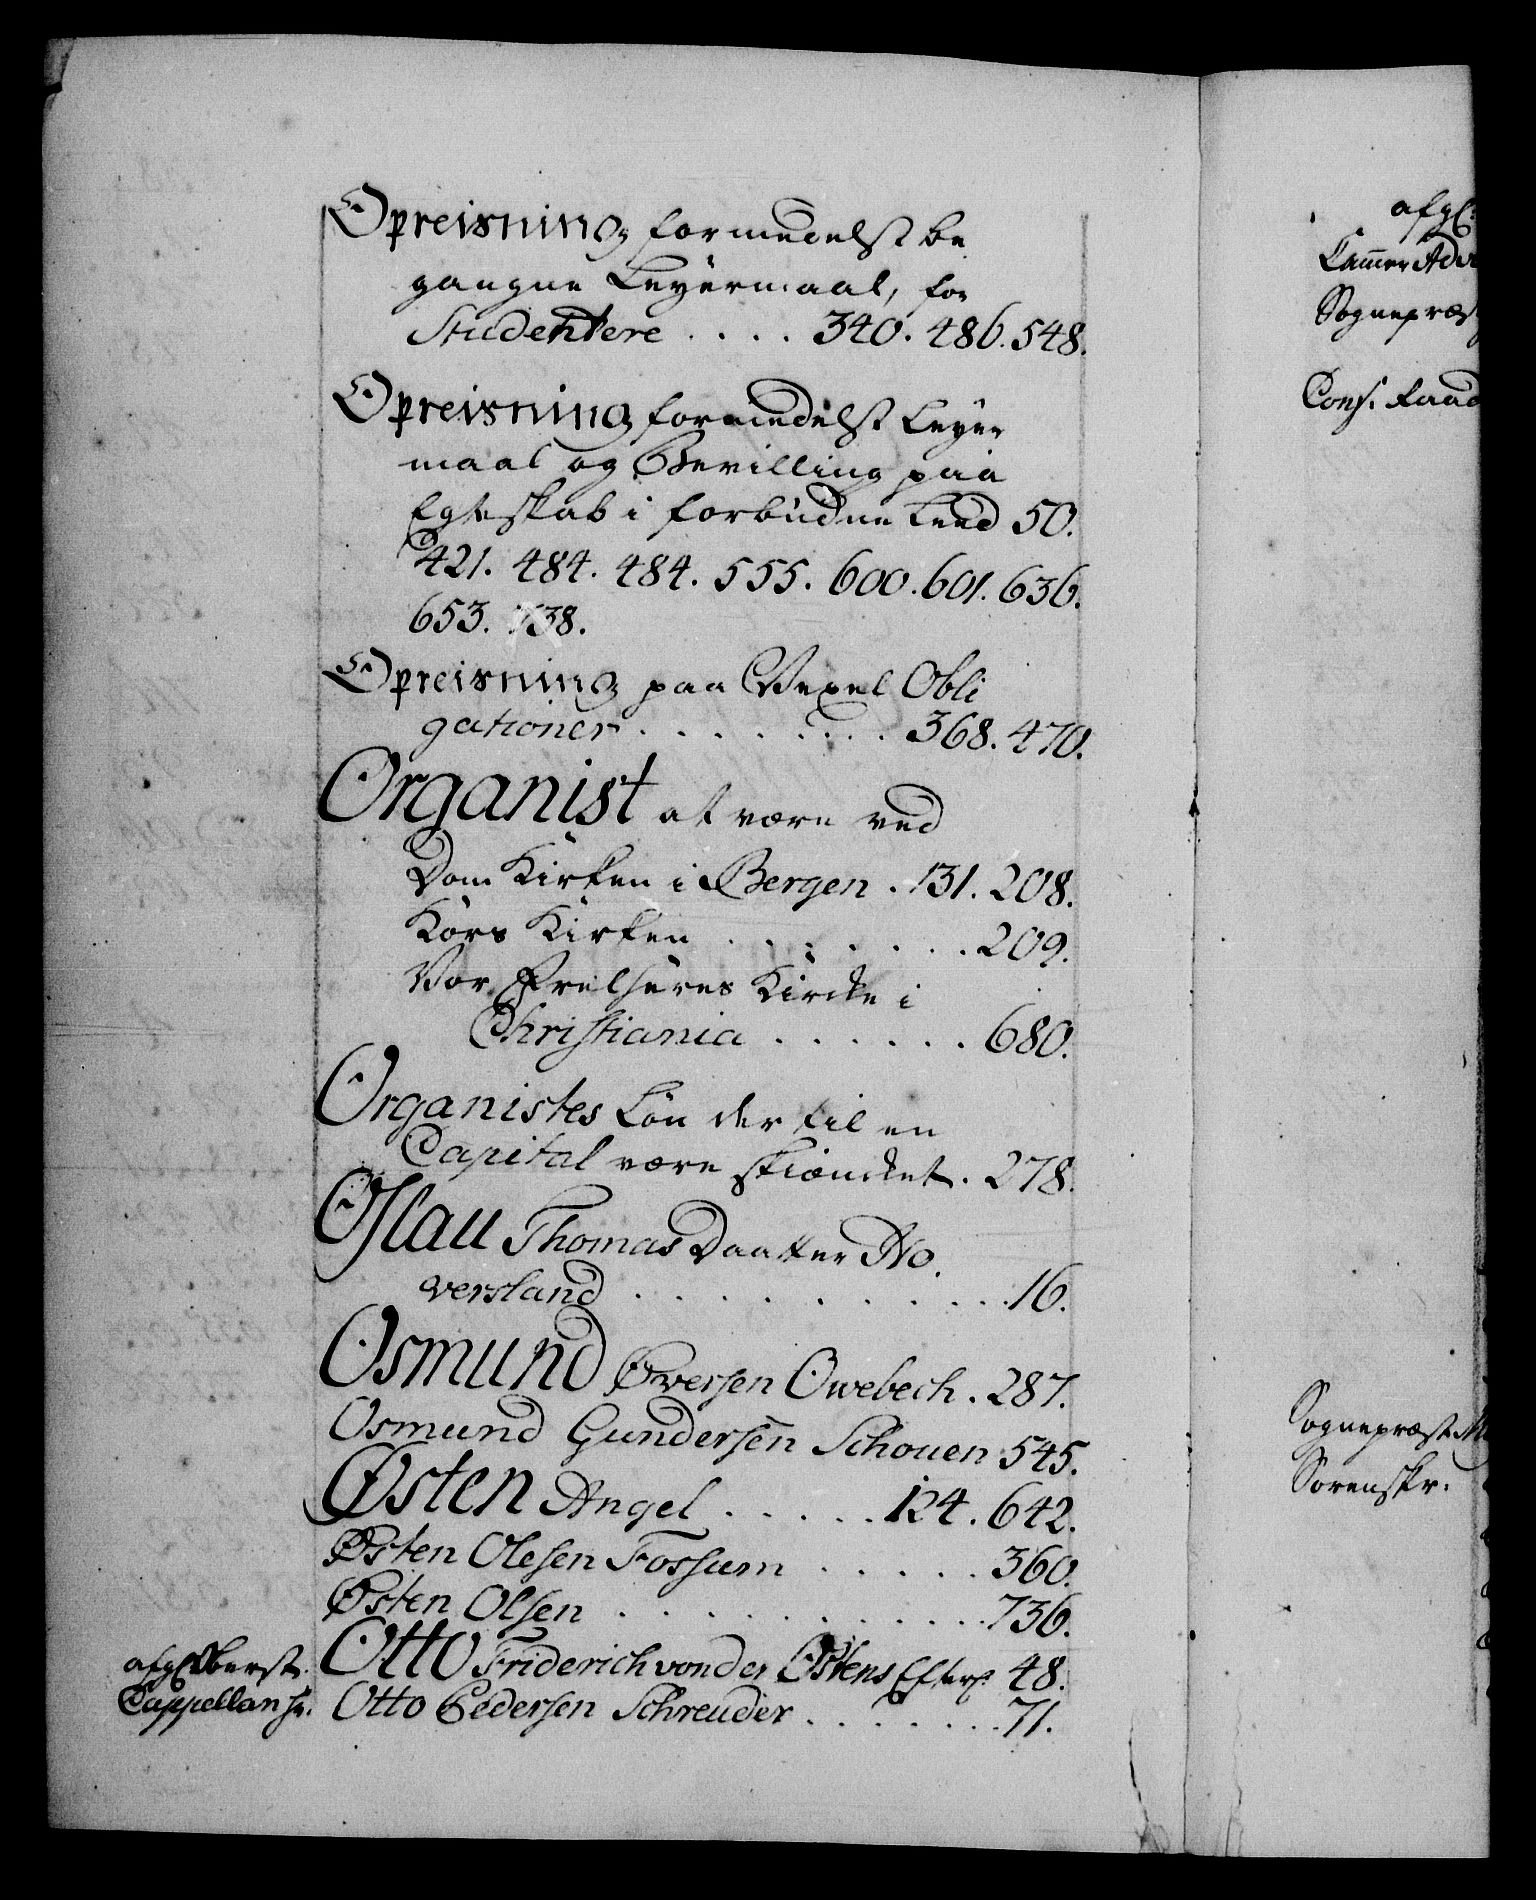 Opreisning formedelst be
gangne Leyermaal, for
Studentere .... 340. 486. 548.
Opreisning formedelst Leyer
maal og Bevilling paa
Egteskab i forbudne Leed 50.
421. 484. 484. 555. 600. 601. 636.
653. 738.
Opreisning paa Vexel Obli
gationer ........ 368. 470.
Organist at være ved
Dom Kirken i Bergen . 131. 208.
Kors Kirken ....... 209.
Vor Frelseres Kircke i
Christiania ...... 680.
Organistes Løn der til en
Capital være skiencket . 278.
Oslau Thomas Daatter Ho
versland .......... 16.
Osmund Øversen Owebech . 287.
Osmund Gundersen Schouen 545.
Østen Angel ..... 124. 642.
Østen Olesen Fossum ..... 360.
Østen Olsen .......... 736.
afgl. Oberst. Otto Friderich von der Østens Efterl. 48.
Cappellan hr. Otto Pedersen Schreuder ....... 71.
afgl.
Cammer Adv
Sognepræst
Cons. Raad
Sognepræst M
Sorenskr.